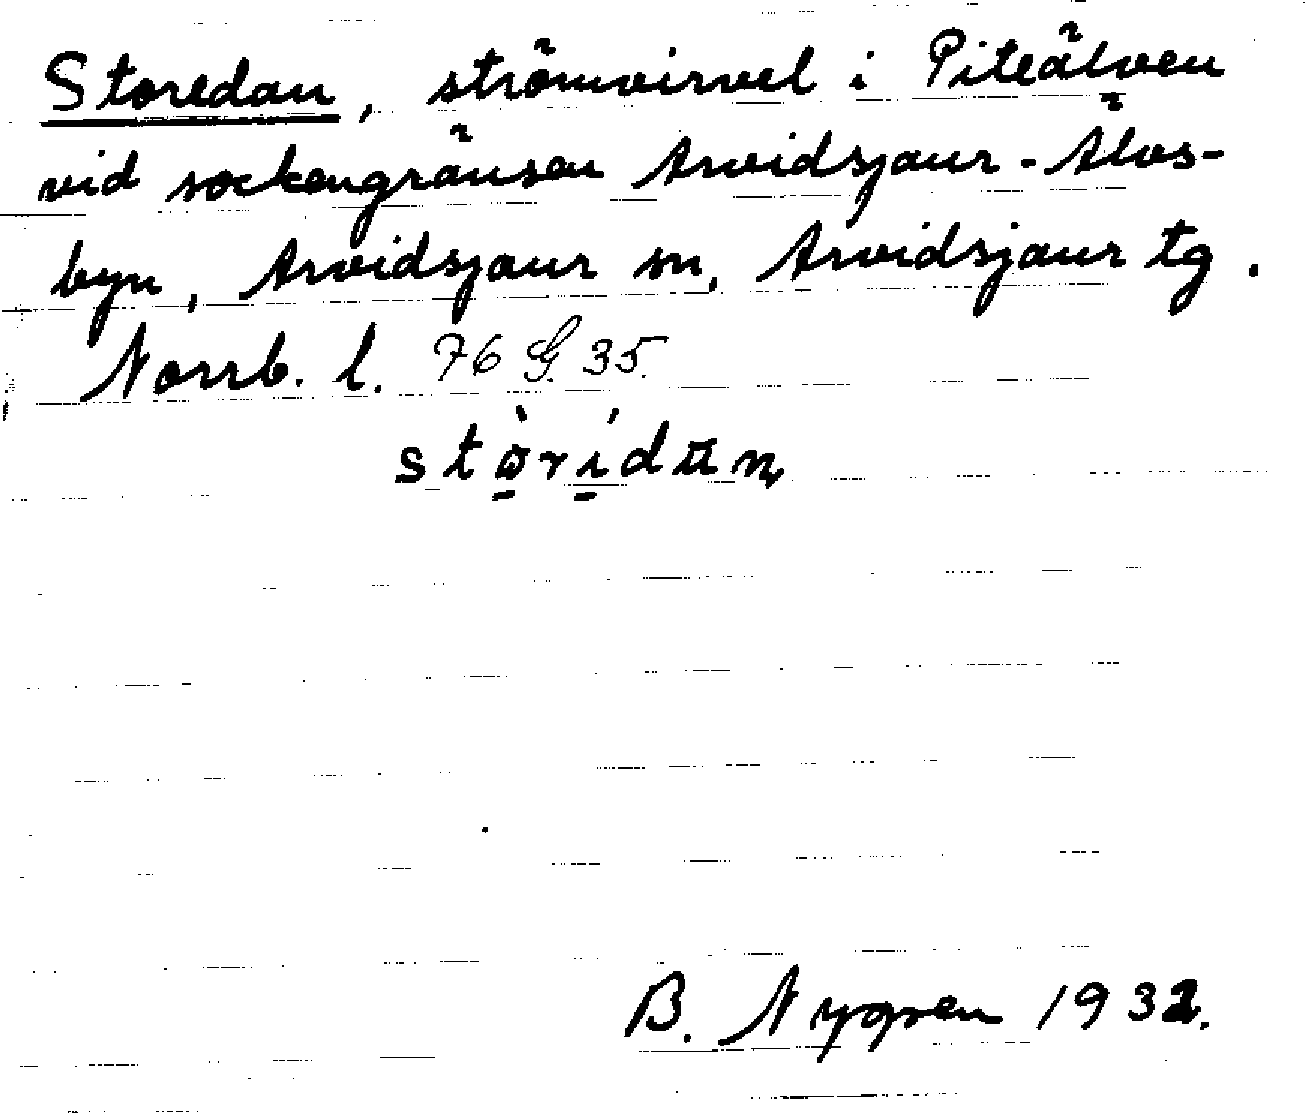 Storedan, strömvirvel i Piteälven
vid sockengränsen Arvidsjaur - Älvs-
byn, Arvidsjaur sn, Arvidsjaur tg.
Norrb. l. 76 G. 35.
B. Nygren 1932.